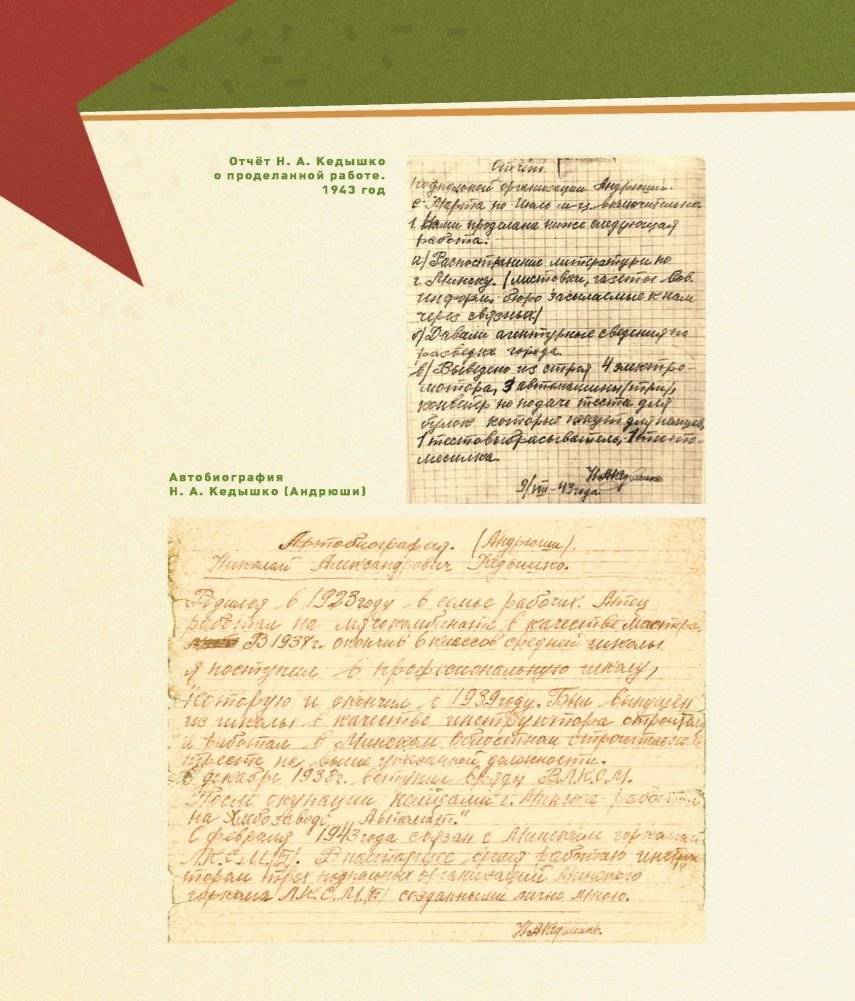 Отчёт Н. А. Кедышко
о проделанной работе.
1943 год
Отчёт
Подпольной организации Андрюши.
с Марта по Июль м-ц. включительно
1. Нами проделана ниже следующая
работа:
а) Распостранение литературы по
г. Минску. (листовки, газеты Сов.
информ. бюро засылаемые к нам
через связных)
б) Давали агентурные сведения по
разведке города.
в) Выведено из строя 4 электро-
мотора, 3 автомашины (три),
конвеер по подаче теста для
булок которые пекут для немцев,
1 тестовыбрасыватель, 1 тесто-
месилка.
Н.А.Кедышко
9/VIII-43 года
Автобиография
Н. А. Кедышко (Андрюши)
Автобиография. (Андрюши).
Николай Александрович Кедышко.
Родился в 1923 году в семье рабочих. Атец
работал на мясокомбинате в качестве мастера,
В 1937г. окончив 6 классов средней школы
я поступил в професиональную школу,
которую и окончил в 1939 году. Был выпущен
из школы в качестве инструктора
и работал в Минском Областном
тресте на выше указанной должности.
В декабре 1938г. вступил в ряды ВЛКСМ.
После окупации немцами г. Минска работал
на Хлебозаводе „Автомат."
С февраля 1943 года связан с Минским горкомом
Л.К.С.М.(Б). В настоящее время работаю инструк
тором трёх подпольных организаций Минского
горкома Л.К.С.М.(Б) созданными лично мною.
Н.А.Кедышко.